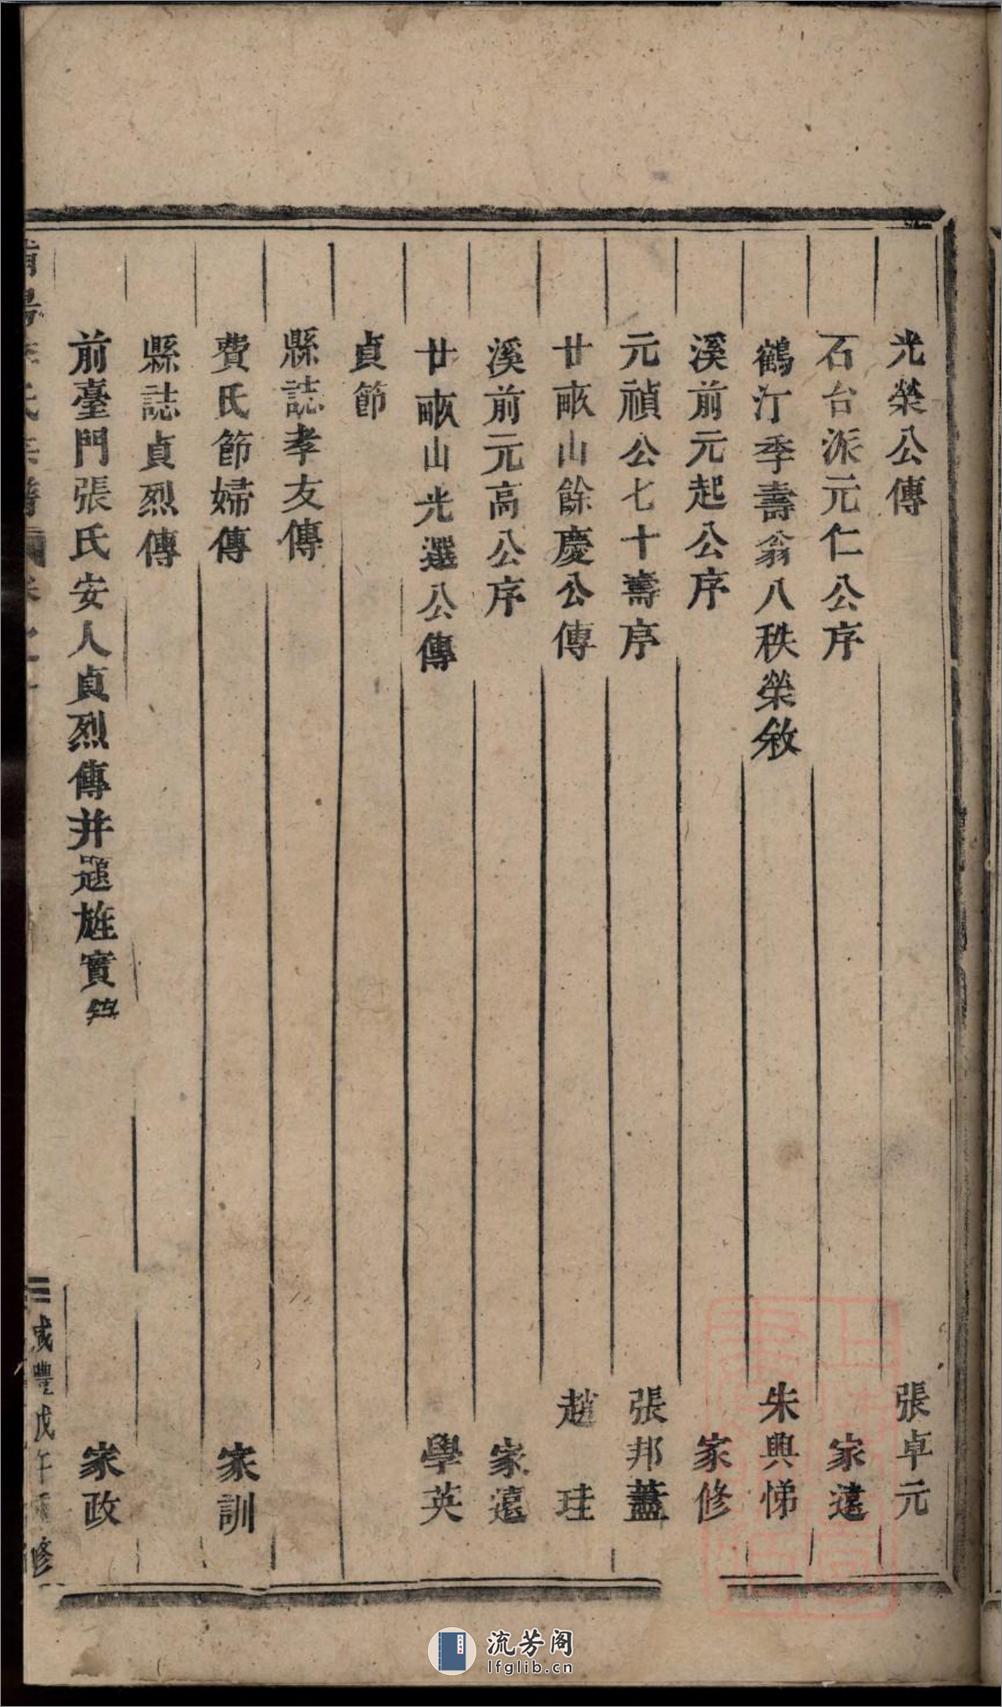 光榮公傳 張卓元
石台派元仁公序 家遠
鶴汀季壽翁八秩榮敘 朱興悌
溪前元起公序 家修
元禎公七十壽序 張邦藎
廿畝山餘慶公傳 趙珪
溪前元高公序 家遠
廿畝山光選公傳 學英
貞節
縣誌孝友傳
費氏節婦傳 家訓
縣誌貞烈傳
前臺門張氏安人貞烈傳并題旌實 家政
氏宗譜 卷之
咸豐戊午 修
流芳阁
lfglib.cn